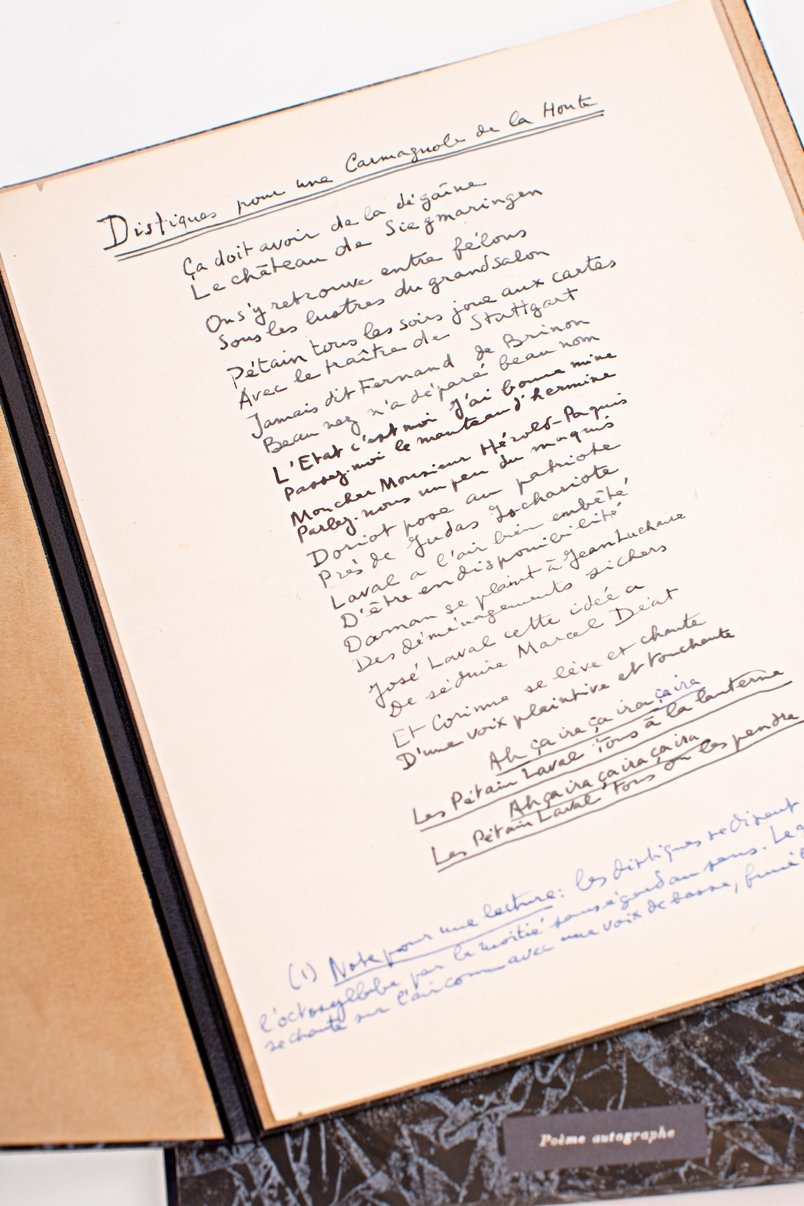 Distiques pour une Carmagnole de la Honte
Ça doit avoir de la dégaîne
Le château de Siegmaringen
On s'y retrouve entre félons
Sous les lustres du grand salon
Pétain tous les soirs joue aux cartes
Avec le traître de Stuttgart
Jamais dit Fernand de Brinon
Beau nez n'a déparé beau nom
L'Etat c'est moi J'ai bonne mine
Passez-moi le manteau d'hermine
Mon cher Monsieur Hérold-Paquis
Parlez-nous un peu du maquis
Doriot pose au patriote
Près de Judas Ischariote
Laval a l'air bien embêté
D'être en disponibilité
Darnan se plaint à Jean Luchaire
Des déménagements si chers
José Laval cette idée a
De séduire Marcel Déat
Et Corinne se lève et chante
D'une voix plaintive et touchante
Ah ça ira ça ira ça ira
Les Pétain Laval Tous à la lanterne
Ah ça ira ça ira ça ira
Les Pétain Laval Tous on les pendra
(1) Note pour une lecture: les distiques se disent
l'octosyllabe par la moitié sans égard au sens. Le
se chante sur l'air connu avec une voix de basse,
Poème autographe